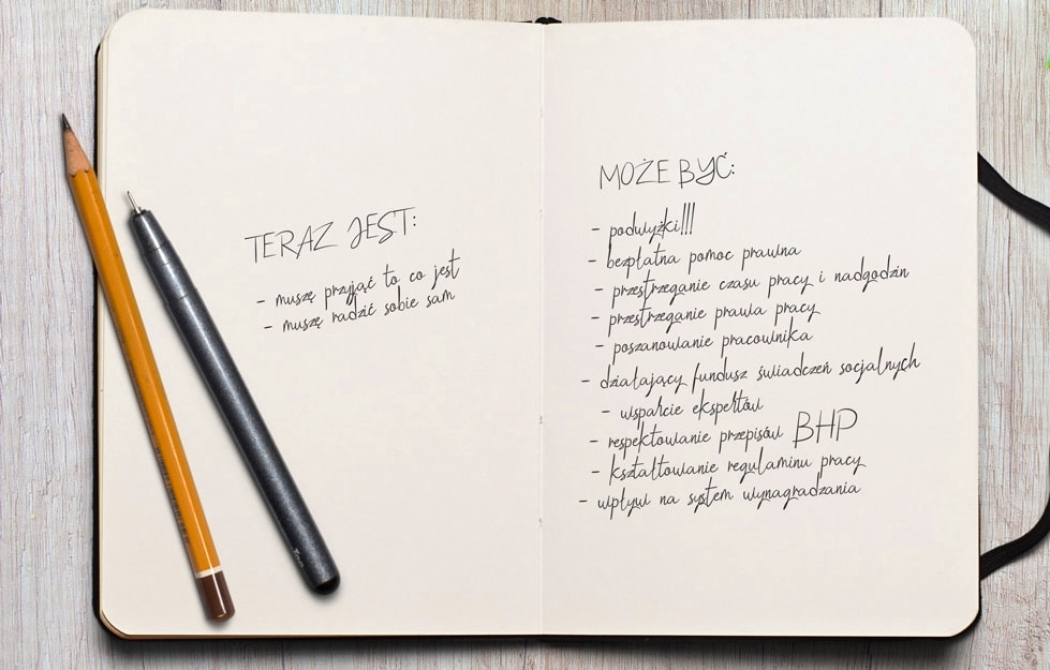 TERAZ JEST:
- muszę przyjąć to co jest
- muszę radzić sobie sam
MOŻE BYĆ:
- podwyżki!!!
- bezpłatna pomoc prawna
- przestrzeganie czasu pracy i nadgodzin
- przestrzeganie prawa pracy
- poszanowanie pracownika
- działający fundusz świadczeń socjalnych
- wsparcie ekspertów
- respektowanie przepisów BHP
- kształtowanie regulaminu pracy
- wpływ na system wynagradzania